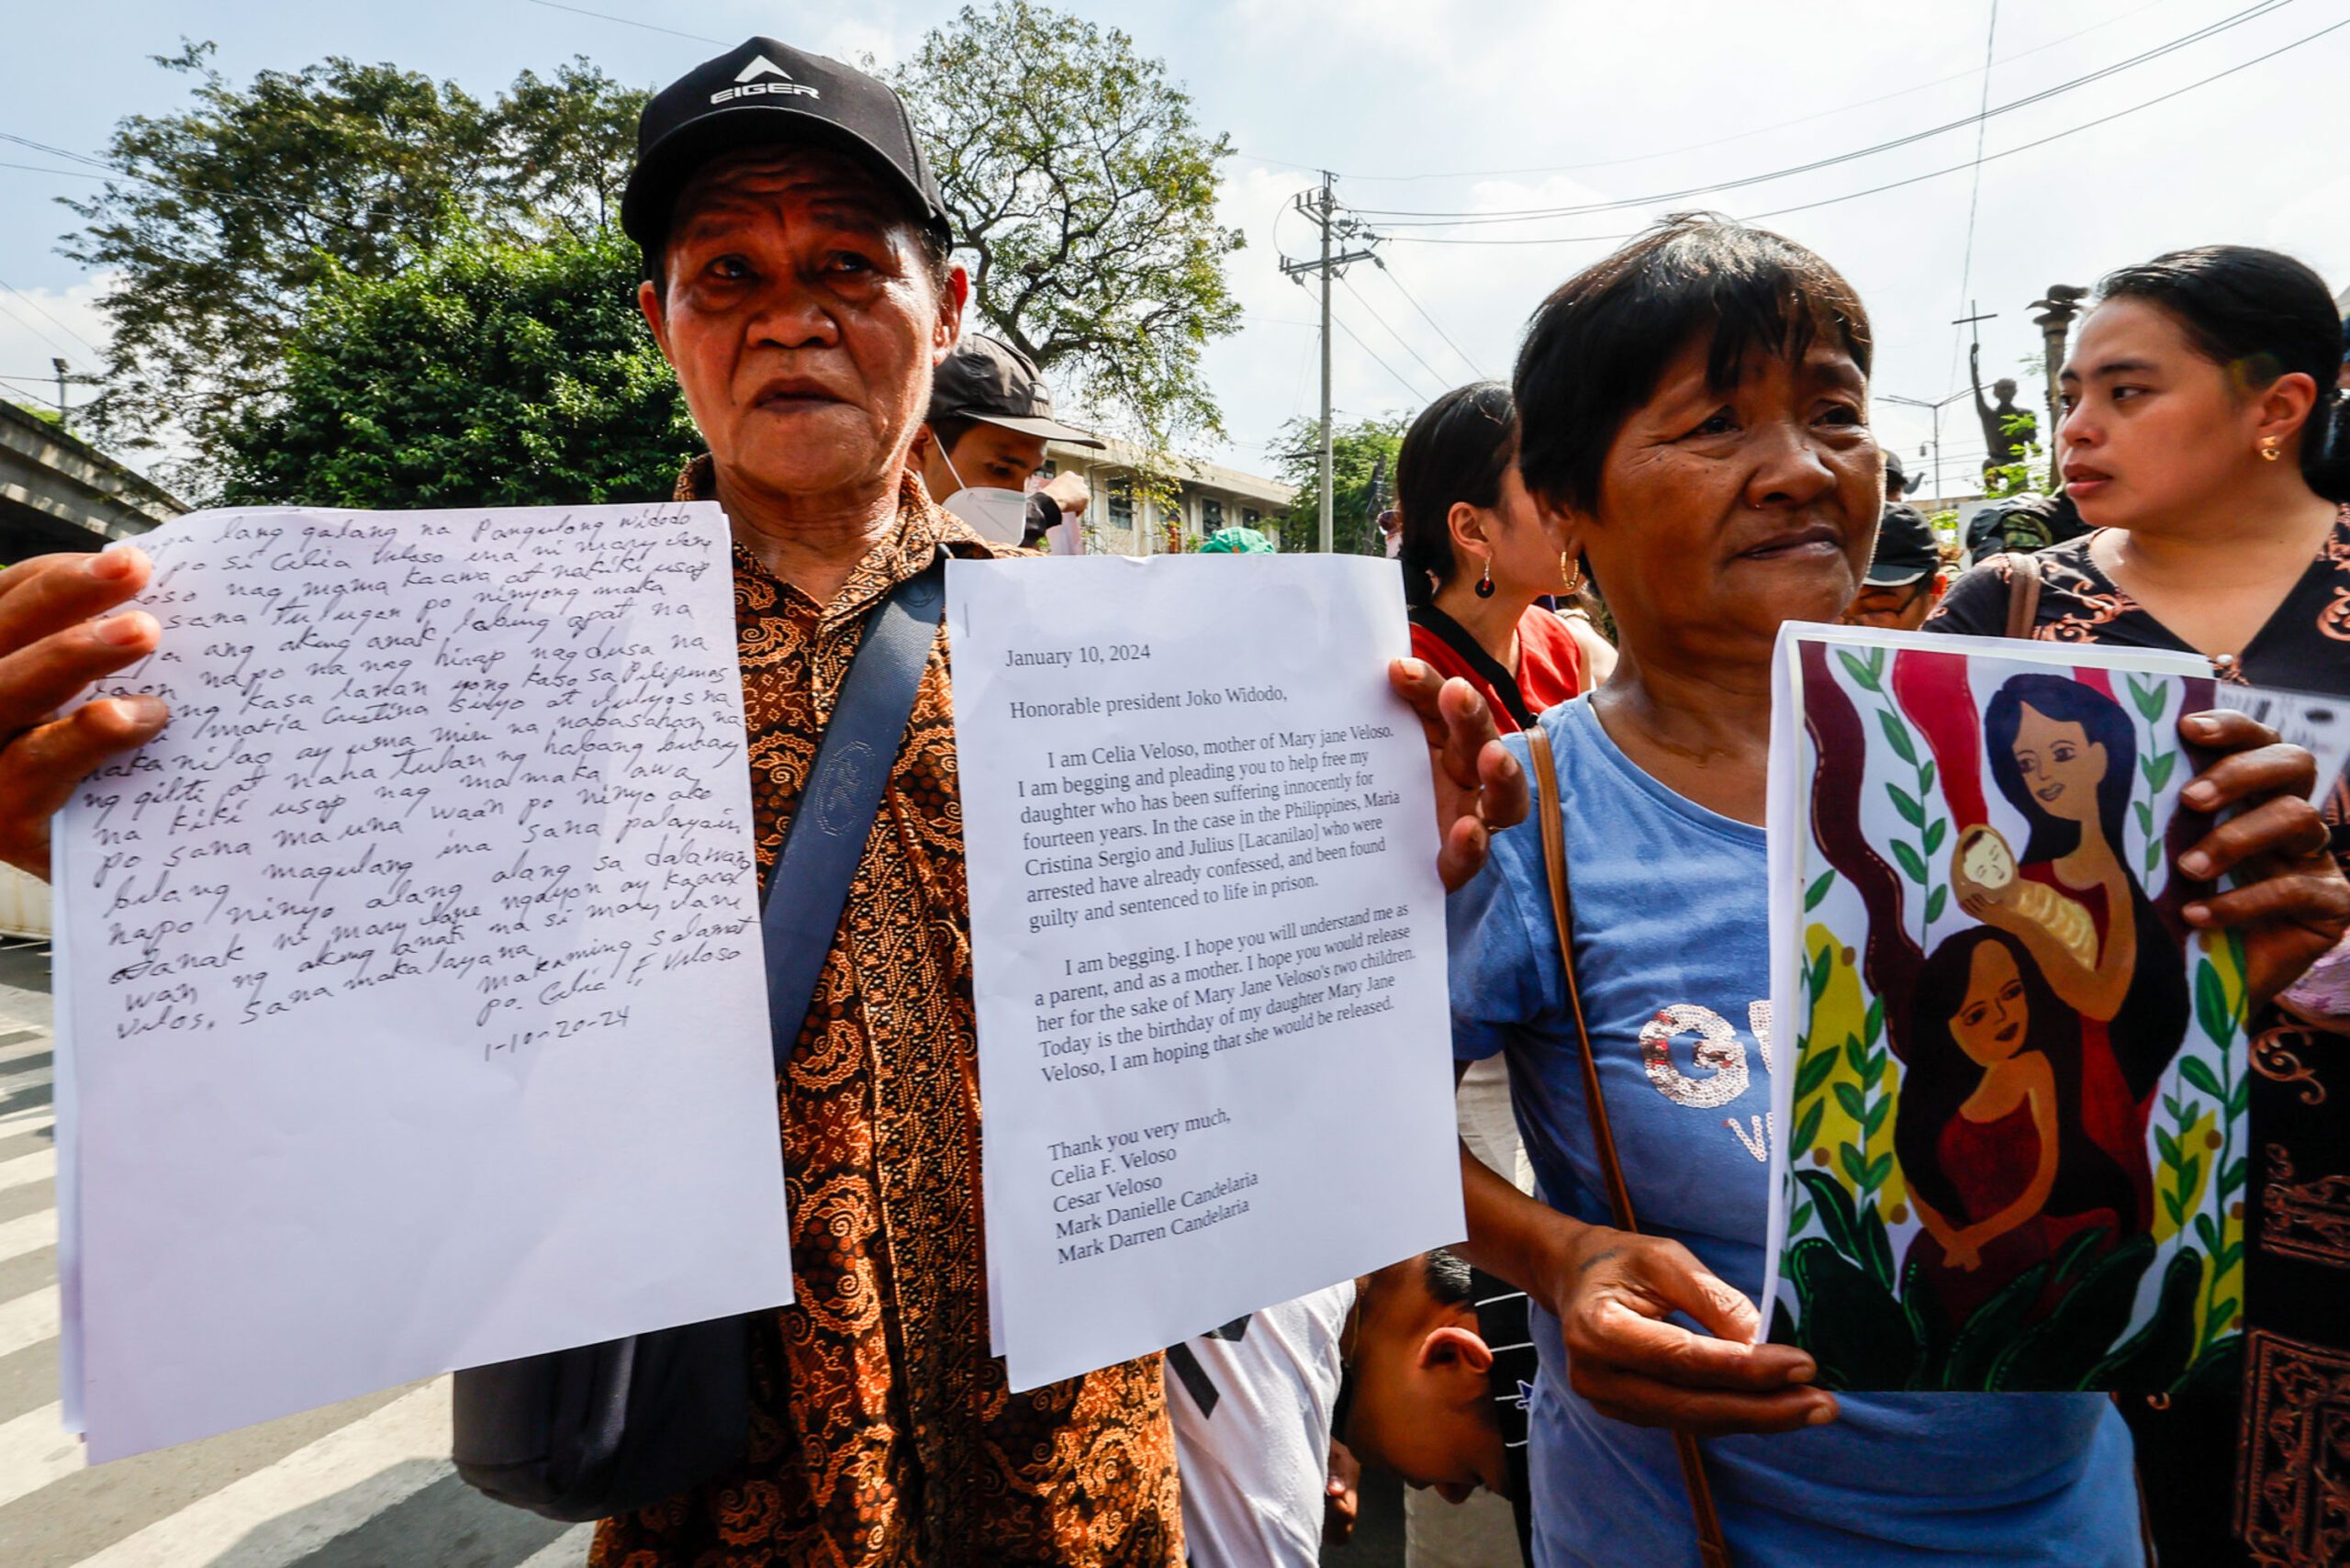 EIGER
lang galang na Pangulong widodo
po si Celia Veloso ina ni mary Jane
oso nag mama kaawa at nakiki usap
sana tulugan po ninyong maka
ang aking anak labing apat na
taon napo na nag hirap nagdusa na
ng kasa lanan yong kaso sa Pilipinas
maria Cristina
at
na
ay uma min na nabasahan na
ng gilti at naha tulan ng habang buhay
na kiki usap nag mamaka awa
po sana ma una waan po ninyo ako
bilang magulang ina sana palayain
napo ninyo alang alang sa dalawang
anak ni mary Jane ngayon ay kaara
wan ng aking anak na si mary Jane
sana makalaya na
maraming salamat
po. Celia F. Veloso
1-10-20-24
January 10, 2024
Honorable president Joko Widodo,
I am Celia Veloso, mother of Mary jane Veloso.
I am begging and pleading you to help free my
daughter who has been suffering innocently for
fourteen years. In the case in the Philippines, Maria
Cristina Sergio and Julius [Lacanilao] who were
arrested have already confessed, and been found
guilty and sentenced to life in prison.
I am begging. I hope you will understand me as
a parent, and as a mother. I hope you would release
her for the sake of Mary Jane Veloso's two children.
Today is the birthday of my daughter Mary Jane
Veloso, I am hoping that she would be released.
Thank you very much,
Celia F. Veloso
Cesar Veloso
Mark Danielle Candelaria
Mark Darren Candelaria